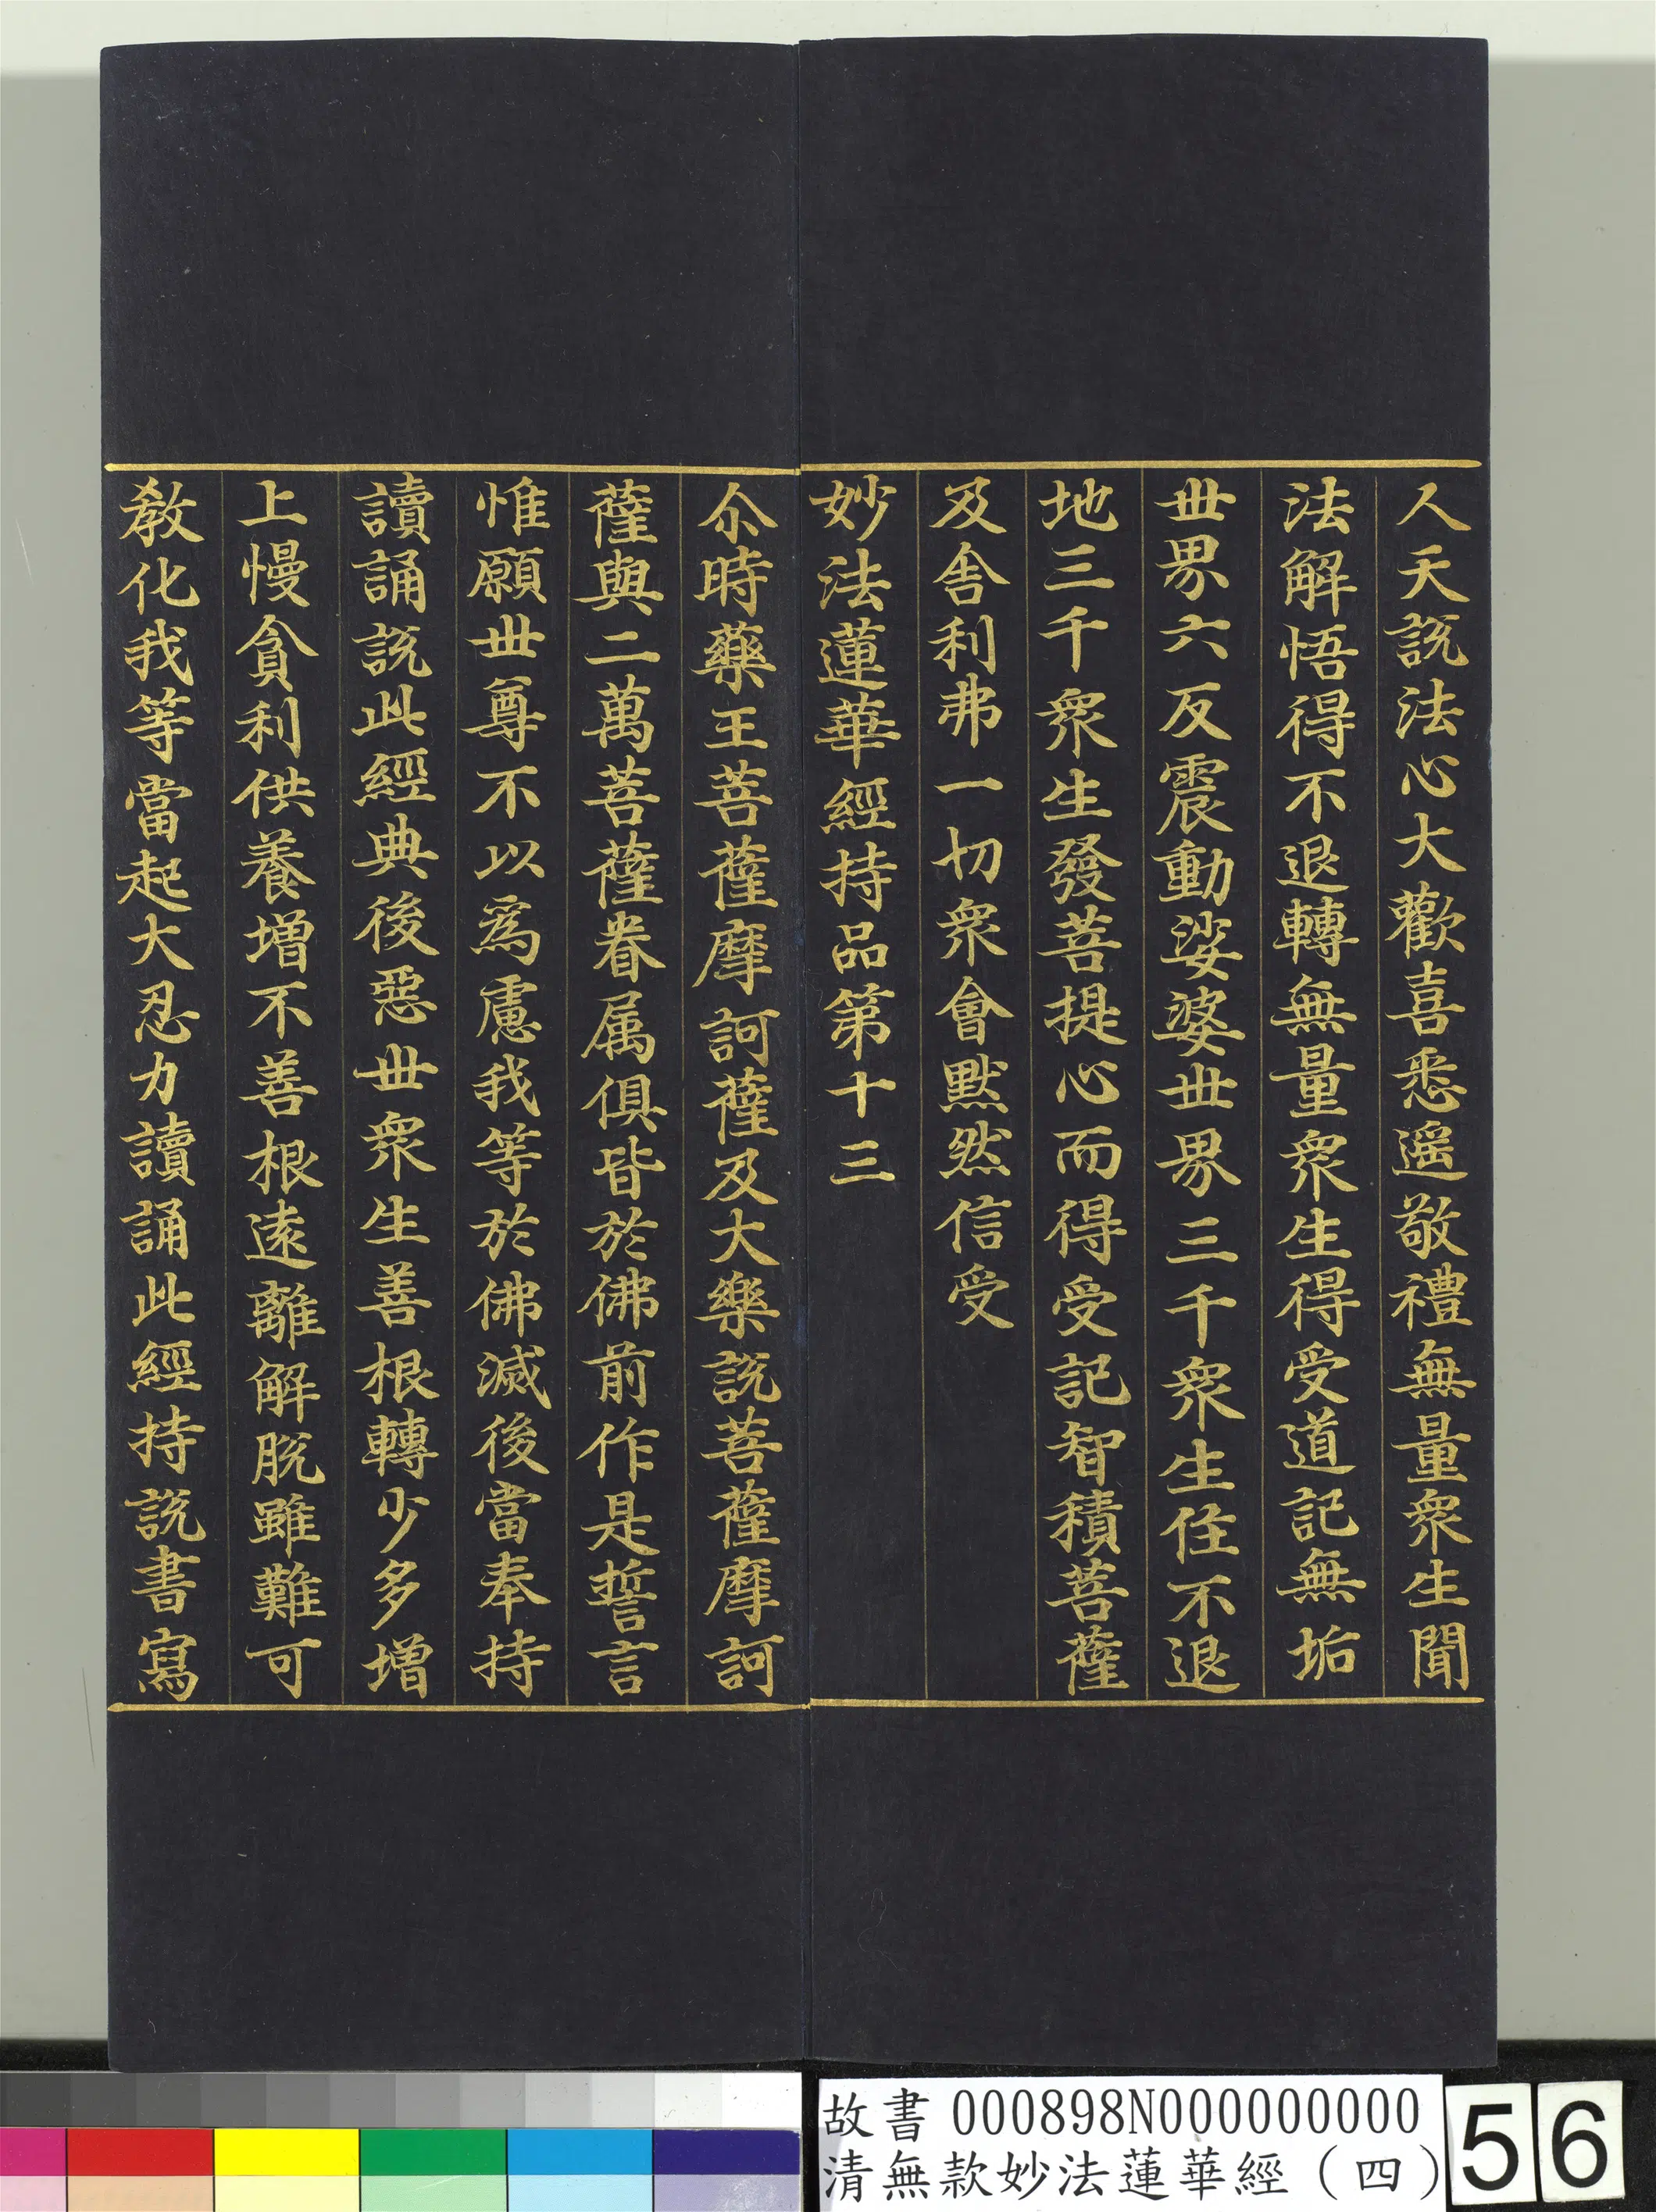 人天說法心大歡喜悉遥敬禮無量衆生聞
法解悟得不退轉無量衆生得受道記無垢
丗界六反震動娑婆丗界三千衆生住不退
地三千衆生發菩提心而得受記智積菩薩
及舎利弗一切衆會默然信受
妙法蓮華經持品第十三
尒時藥王菩薩摩訶薩及大樂說菩薩摩訶
薩與二萬菩薩眷属俱皆於佛前作是誓言
惟願丗尊不以為慮我等於佛滅後當奉持
讀誦說此經典後惡丗衆生善根轉少多增
上慢貪利供養增不善根逺離解脫雖難可
教化我等當起大忍力讀誦此經持說書寫
故書 000898N000000000
清無款妙法蓮華經（四）
56